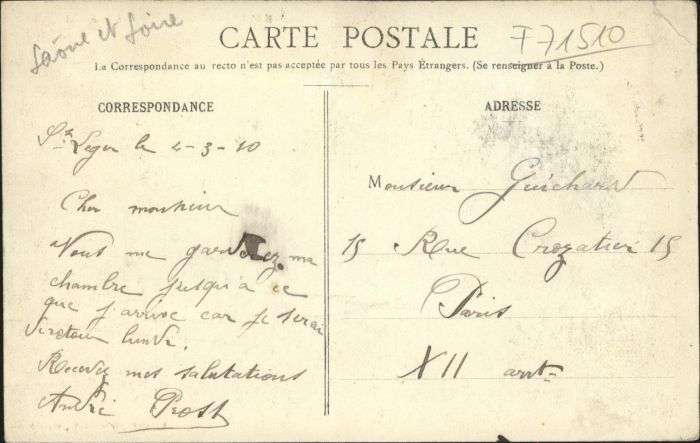 Saône et Loire
F71510
CARTE POSTALE
La Correspondance au recto n'est pas acceptée par tous les Pays Étrangers. (Se renseigner à la Poste.)
CORRESPONDANCE
St Leger le 4-3-10
Cher monsieur
Vous me garderez ma
chambre jusqu'à ce
que j'arrive car je serai
de retour lundi.
Recevez mes salutations
André Prost
ADRESSE
Monsieur Guichard
15 Rue Crozatier 15
Paris
XII arrt